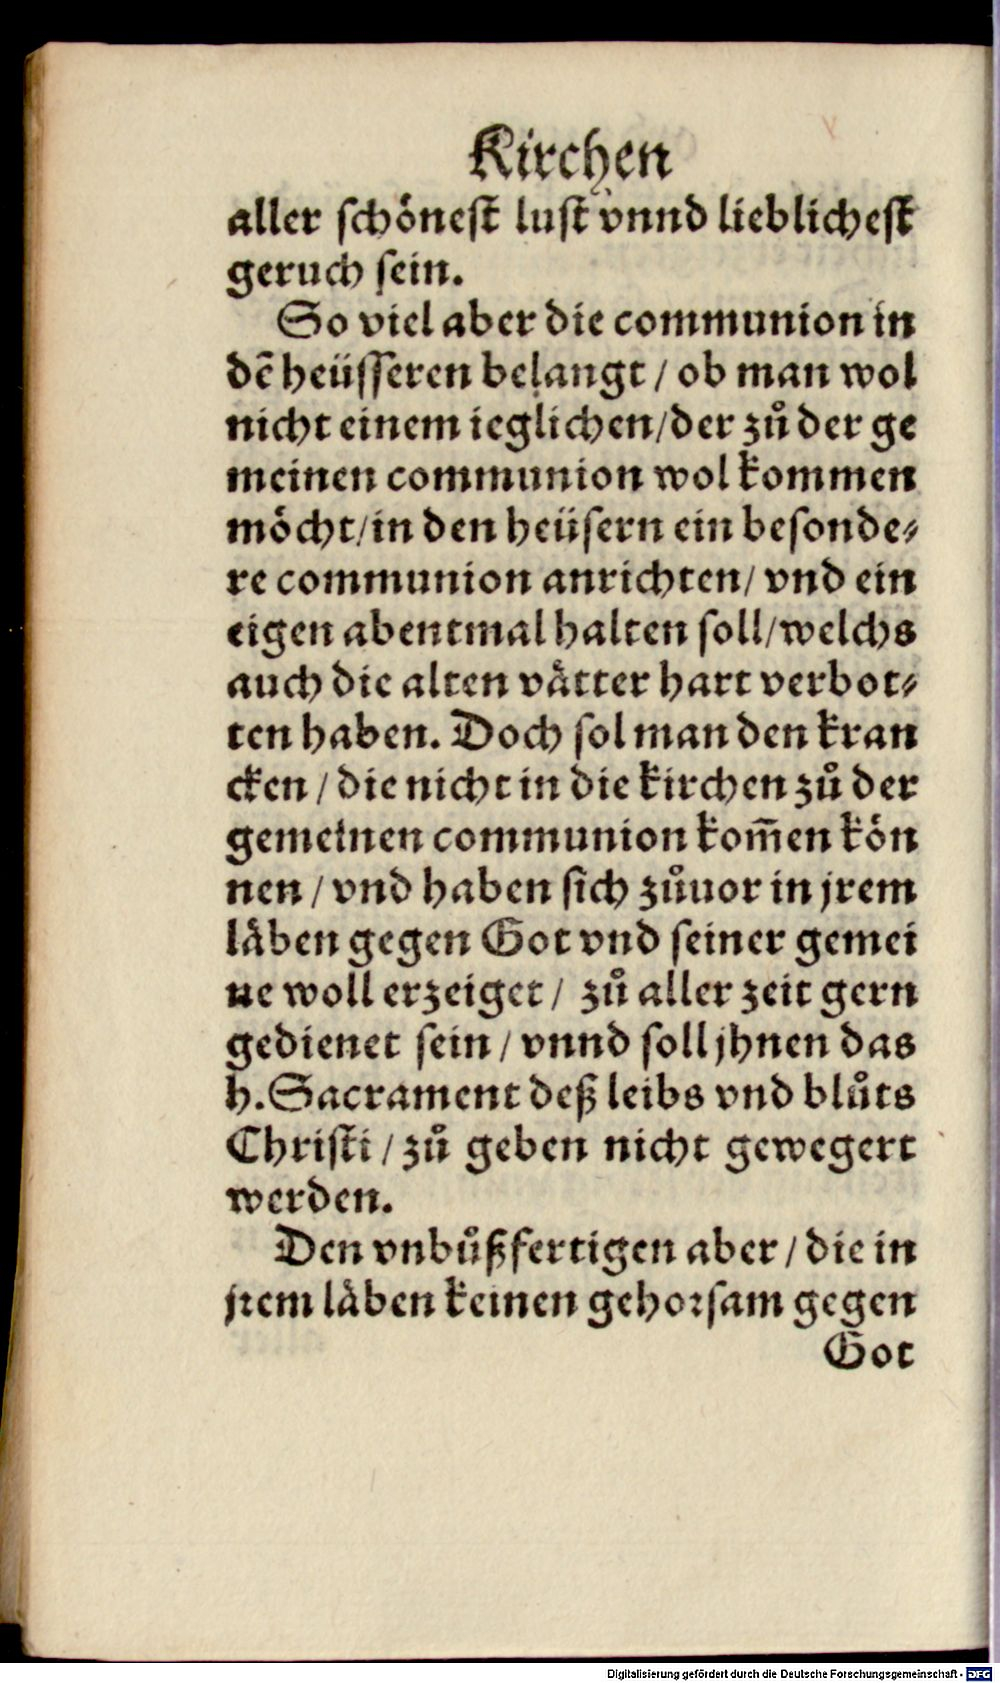 Kirchen
aller schönest lust vnnd lieblichest
geruch sein.
So viel aber die communion in
dē heüsseren belangt / ob man wol
nicht einem ieglichen/der zů der ge
meinen communion wol kommen
möcht/in den heüsern ein besonde⸗
re communion anrichten/ vnd ein
eigen abentmal halten soll/welchs
auch die alten vätter hart verbot⸗
ten haben. Doch sol man den kran
cken / die nicht in die kirchen zů der
gemeinen communion kom̄en kön
nen / vnd haben sich zůuor in jrem
läben gegen Got vnd seiner gemei
ne woll erzeiget / zů aller zeit gern
gedienet sein / vnnd soll jhnen das
h. Sacrament deß leibs vnd blůts
Christi / zů geben nicht gewegert
werden.
Den vnbůßfertigen aber / die in
jrem läben keinen gehorsam gegen
Got
Digitalisierung gefördert durch die Deutsche Forschungsgemeinschaft - DFG